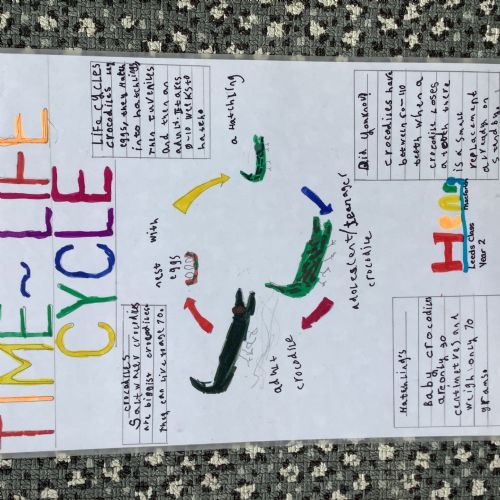 TIME~LIFE
CYCLE
Crocodiles
Salt water crocodiles
are biggist crocodiles
they can live to age 70.
LIFE CYCLES
crocodiles lay
eggs. they hatch
into hatchlings
Then juveniles
And then an
adult. It takes
8-10 weeks to
hatch
a hatchling
nest with
eggs
adolescent/teenager
crocodile
adult
crocodile
Hatchlings
Baby crocodiles
are only 30
centimetres and
weigh only 70
grams.
Did you know?
crocodiles have
between 60-110
teeth when a
crocodile loses
a tooth there
is a small
replacement
already on
standby
Leeds Class
Year 2